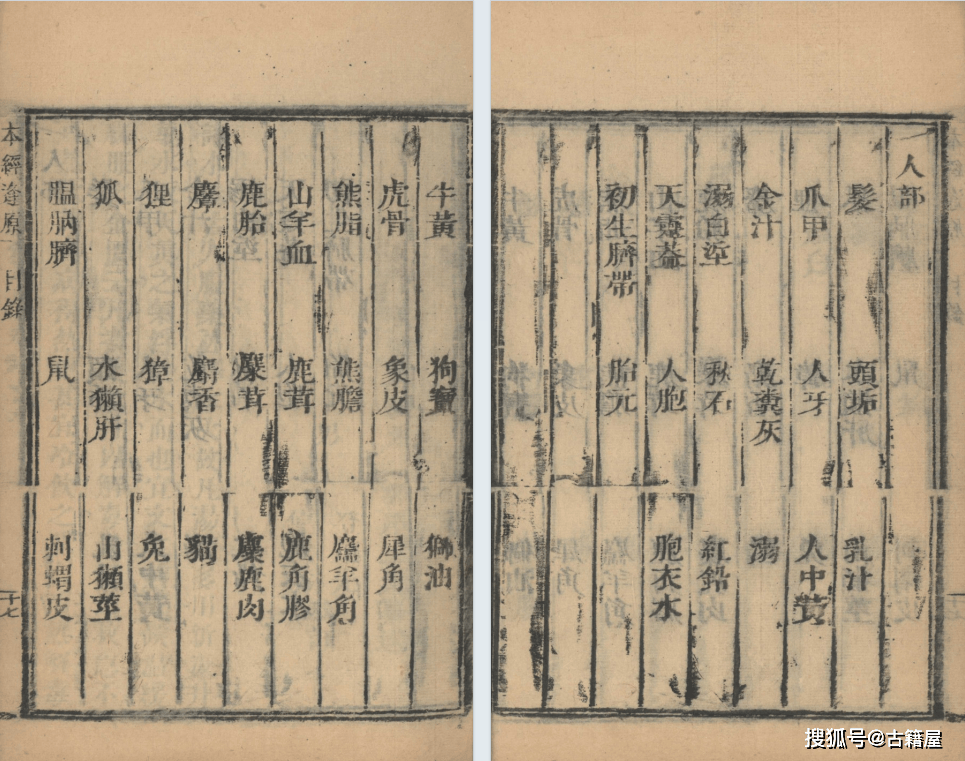 人部
髮 頭垢 乳汁
爪甲 人牙 人中黃
金汁 乾糞灰 溺
溺白垽 秋石 紅鉛
天靈蓋 人胞 胞衣水
初生臍帶 胎元
牛黃 狗寶 獅油
虎骨 象皮 犀角
熊脂 熊膽 麢羊角
山羊血 鹿茸 鹿角膠
鹿胎 麋茸 麋鹿肉
麝香 貓
狸 獐 兔
狐 水獺肝 山獺莖
膃肭臍 鼠 刺蝟皮
本經逢原 目錄 十七
搜狐号@古籍屋